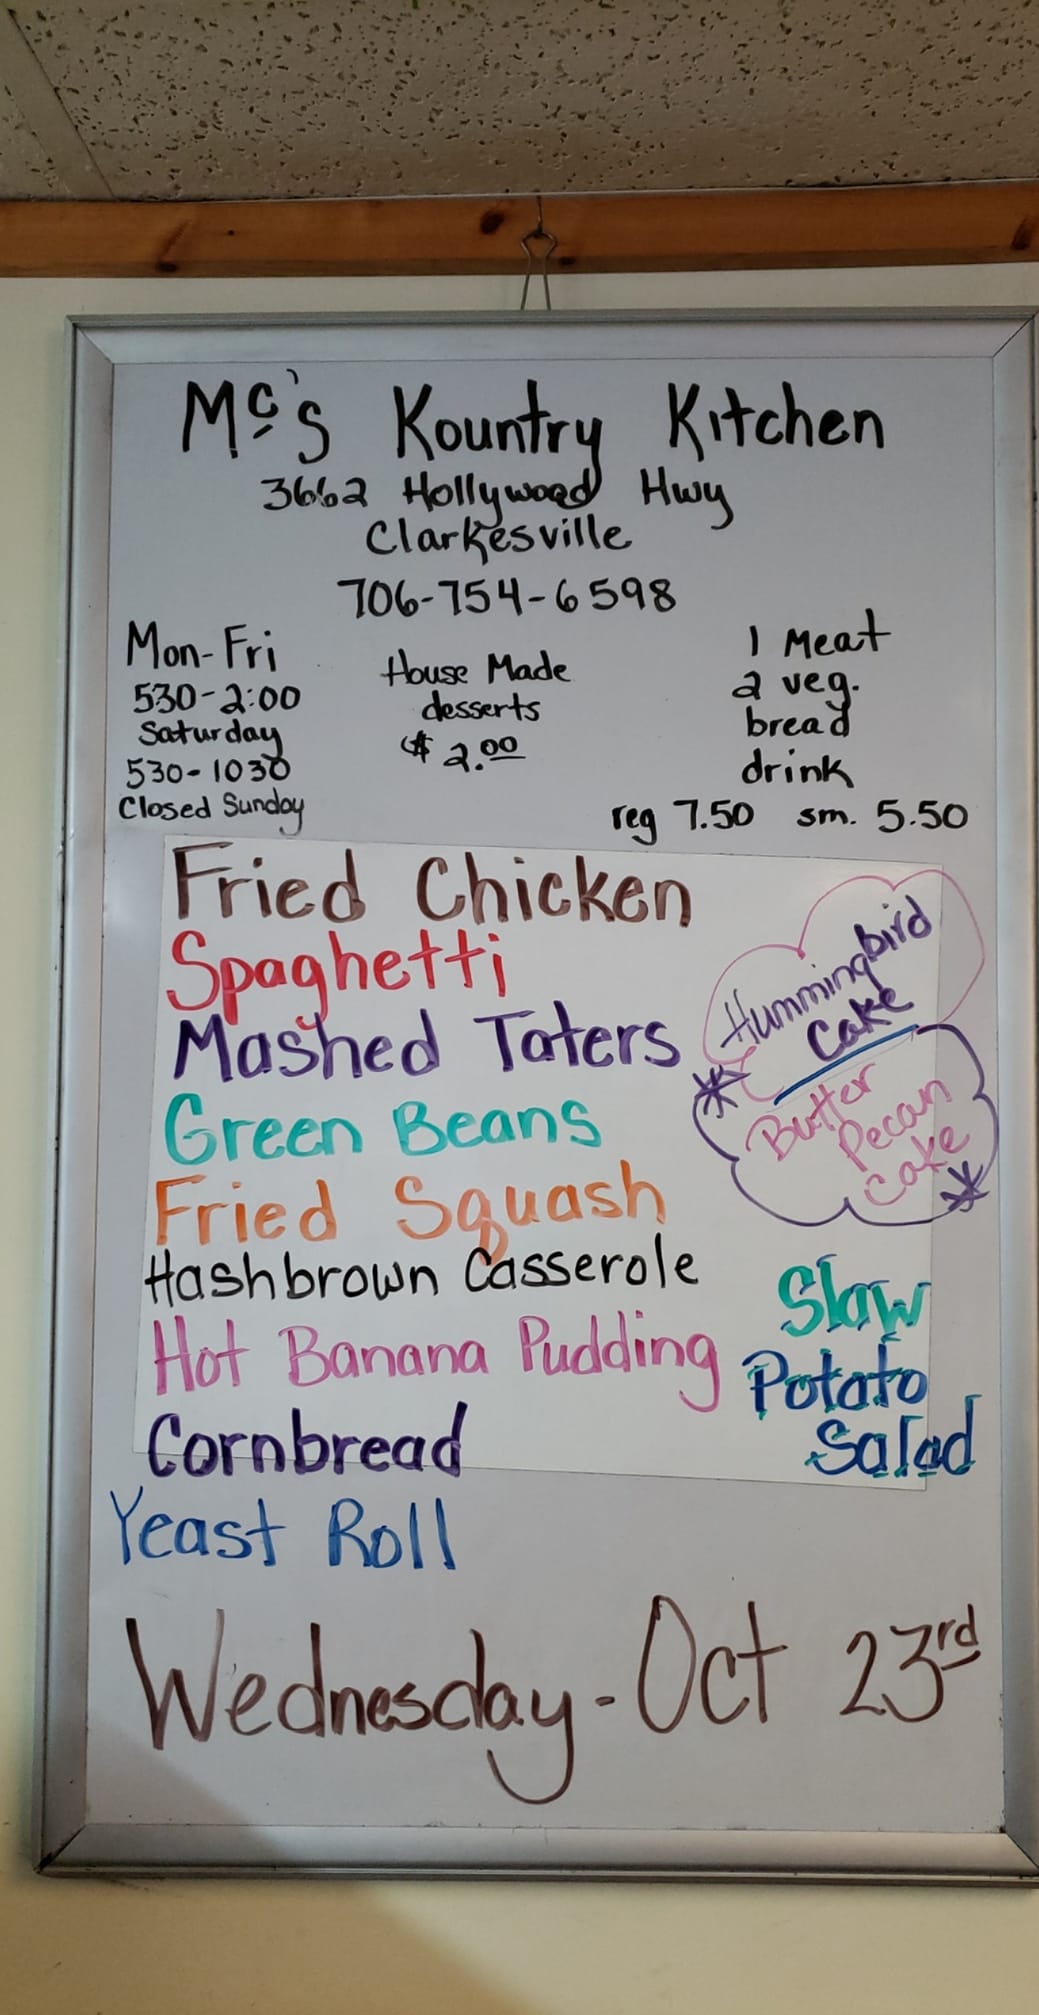 Mc's Kountry Kitchen
3662 Hollywood Hwy
Clarkesville
706-754-6598
Mon-Fri
530-2:00
Saturday
530-1030
Closed Sunday
House Made
desserts
$2.00
1 Meat
2 veg.
bread
drink
reg 7.50 sm. 5.50
Fried Chicken
Spaghetti
Mashed Taters
Green Beans
Fried Squash
Hashbrown Casserole
Hot Banana Pudding
Cornbread
Yeast Roll
Hummingbird
Cake
Butter
Pecan
Cake
Slaw
Potato
Salad
Wednesday-Oct 23rd